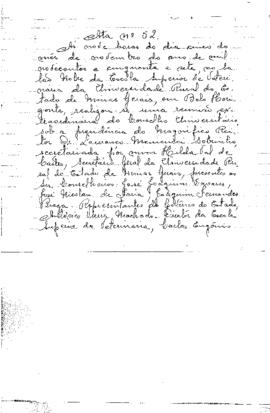 Ata nº 52.
Às nove horas do dia cinco do
mês de novembro do ano de mil
novecentos e cinquenta e sete, no Sa-
lão Nobre da Escola Superior de Veteri-
nária da Universidade Rural do Es-
tado de Minas Gerais, em Belo Hori-
zonte, realizou-se uma reunião ex-
traordinária do Conselho Universitário
sob a presidência do Magnífico Rei-
tor Dr. Lourenço Menicucci Sobrinho,
secretariada por mim, de
Castro, Secretário Geral da Universidade Ru-
ral do Estado de Minas Gerais, presentes os
Srs. Conselheiros: José Joaquim
José Nicolau de Faria e Joaquim Fernandes
Braga. Representantes do Governo do Estado,
Machado, Diretor da Escola
Superior de Veterinária, Carlos Eugênio